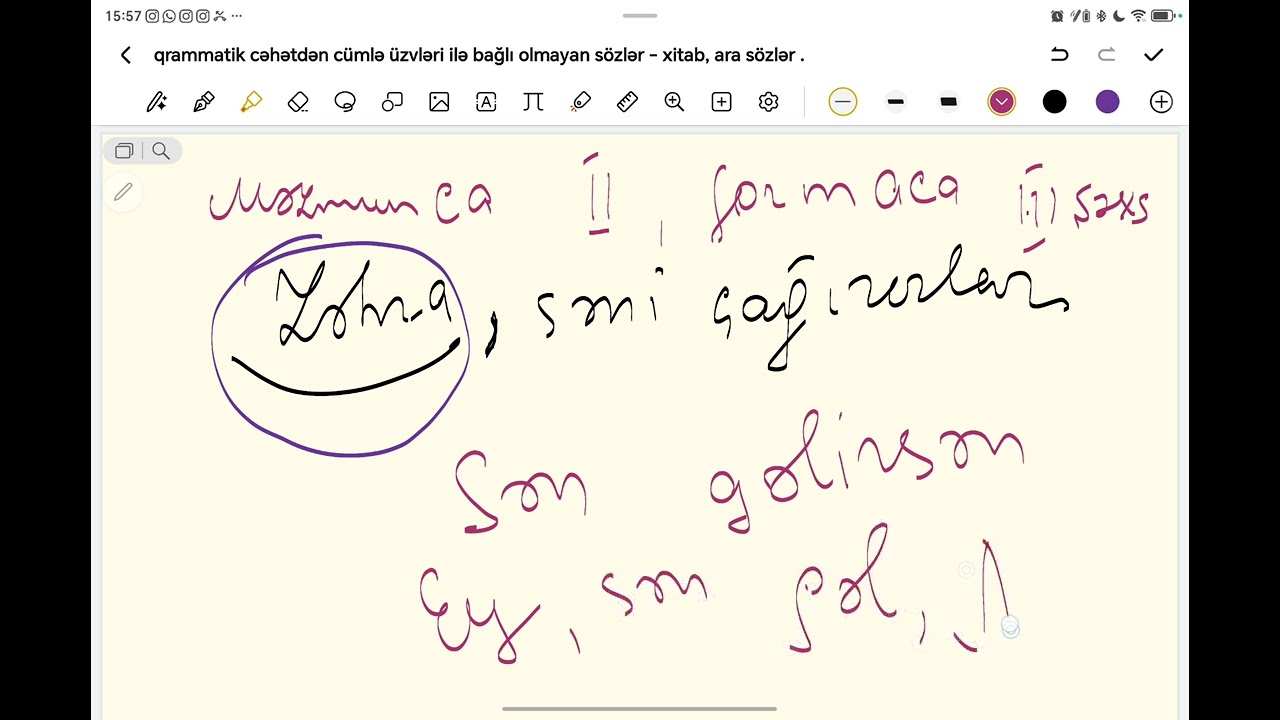 15:57
qrammatik cəhətdən cümlə üzvləri ilə bağlı olmayan sözlər - xitab, ara sözlər .
Məzmunca II, formaca III şəxs
Zəhra, səni çağırırlar
Sən gəlirsən
Ey, sən gəl,